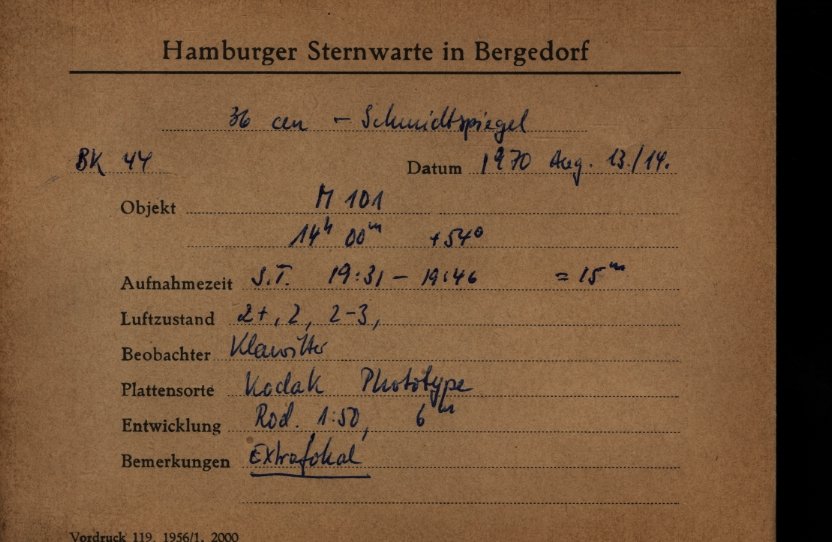 Hamburger Sternwarte in Bergedorf
36 cm - Schmidtspiegel
BK 44 Datum 1970 Aug. 13./14.
Objekt M 101
14h 00m +54°
Aufnahmezeit S.T. 19:31 - 19:46 = 15m
Luftzustand 2+, 2, 2-3,
Beobachter Klawitter
Plattensorte Kodak Phototype
Entwicklung Rod. 1:50, 6m
Bemerkungen Extrafokal
Vordruck 119. 1956/1. 2000